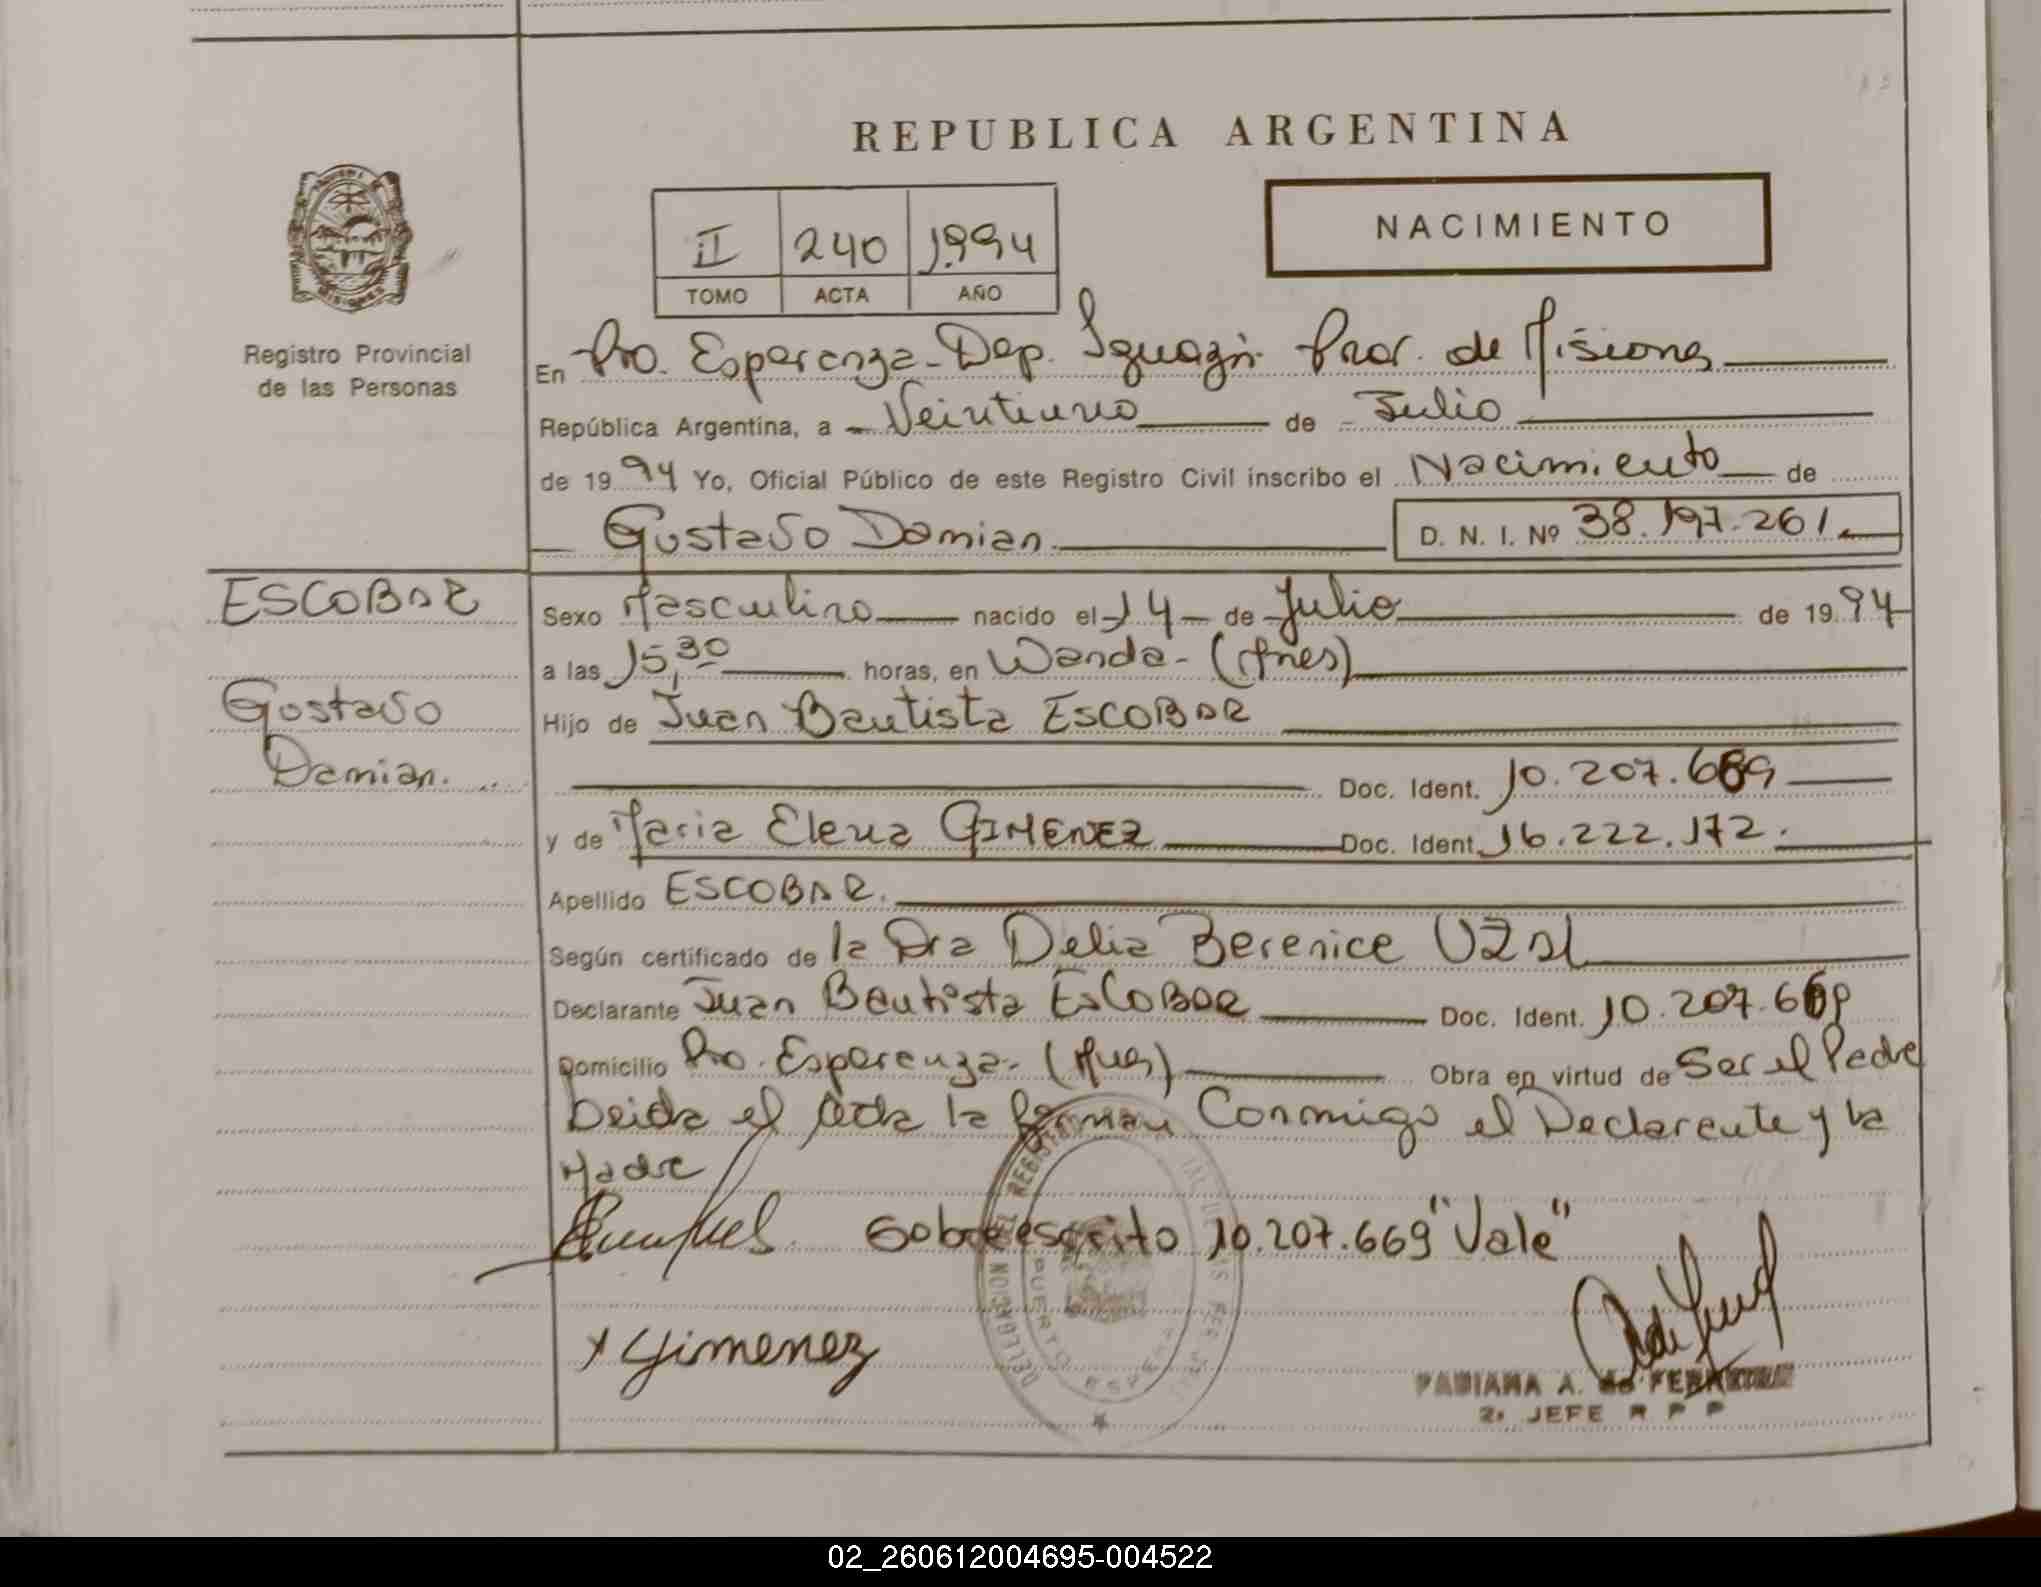 REPUBLICA ARGENTINA
NACIMIENTO
II 240 1.994
TOMO ACTA AÑO
MISIONES
Registro Provincial
de las Personas
En Pto. Esperanza - Dep. Iguazú. Prov. de Misiones
República Argentina, a Veintiuno de Julio
de 19 94 Yo, Oficial Público de este Registro Civil inscribo el Nacimiento de
Gustavo Damian. D. N. I. Nº 38.197.261
ESCOBAR
Gustavo
Damian.
Sexo Masculino nacido el 14 de Julio de 19 94
a las 15,30 horas, en Wanda - (Mnes)
Hijo de Juan Bautista ESCOBAR
Doc. Ident. 10.207.669
y de Maria Elena GIMENEZ Doc. Ident. 16.222.172.
Apellido ESCOBAR.
Según certificado de la Dra Delia Berenice UZAL
Declarante Juan Bautista EsCOBAR Doc. Ident. 10.207.669
Domicilio Pto. Esperanza - (Mnes) Obra en virtud de Ser el Padre
Leida el Acta la firman Conmigo el Declarante y la
Madre
Sobreescrito 10.207.669 "Vale"
x Gimenez
FABIANA A. de FERREYRA
2º JEFE R P P
02_260612004695-004522